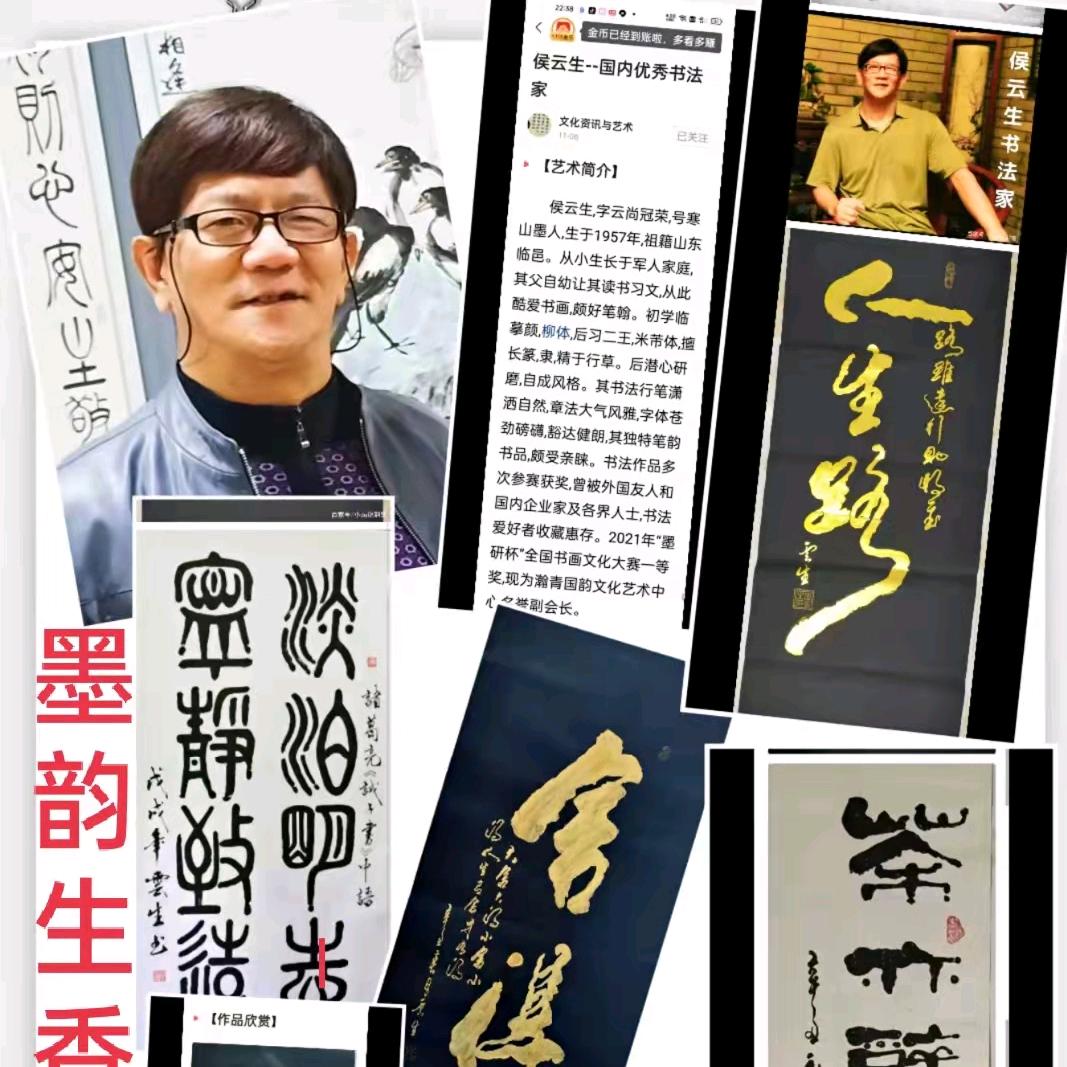 则
心
安
坐
敬
22:38
金币已经到账啦，多看多赚
侯云生--国内优秀书法
家
文化资讯与艺术
11-06
已关注
【艺术简介】
侯云生,字云尚冠荣,号寒
山墨人,生于1957年,祖籍山东
临邑。从小生长于军人家庭,
其父自幼让其读书习文,从此
酷爱书画,颇好笔翰。初学临
摹颜,柳体,后习二王,米芾体,擅
长篆,隶,精于行草。后潜心研
磨,自成风格。其书法行笔潇
洒自然,章法大气风雅,字体苍
劲磅礴,豁达健朗,其独特笔韵
书品,颇受亲睐。书法作品多
次参赛获奖,曾被外国友人和
国内企业家及各界人士,书法
爱好者收藏惠存。2021年“墨
研杯”全国书画文化大赛一等
奖,现为瀚青国韵文化艺术中
心名誉副会长。
侯云生书法家
人生路
路虽远行则将至
云生
墨韵生香
淡泊明志
寧靜致远
諸葛亮《誡子書》中語
戊戌年雲生书
舍得
【作品欣赏】
茶